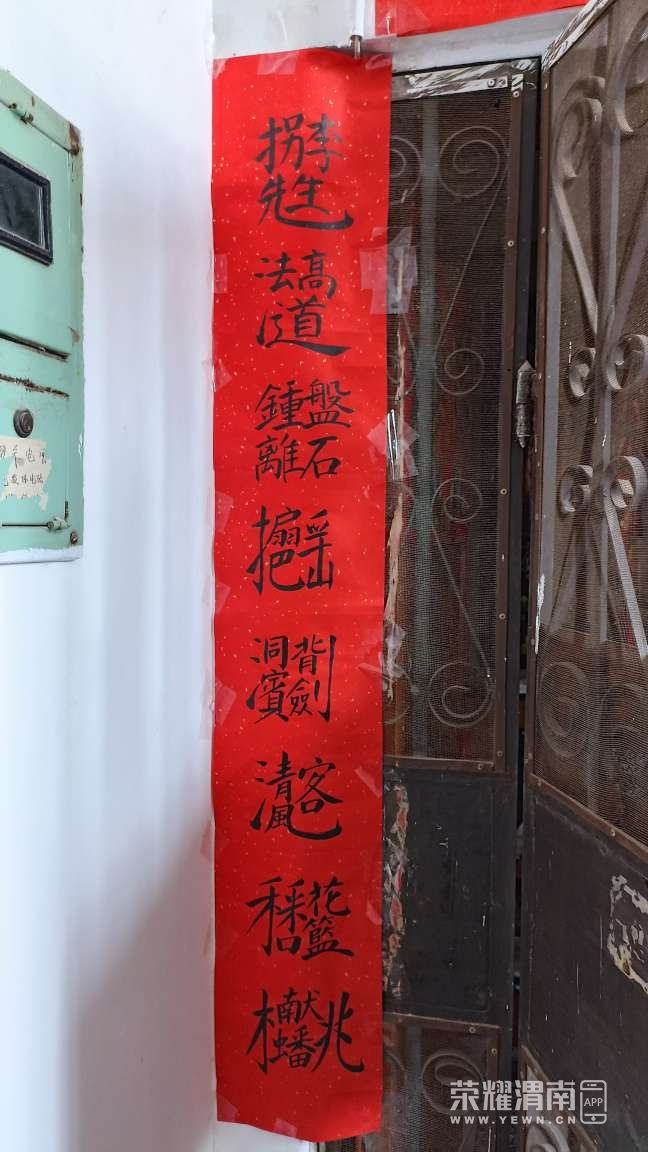 拐李先生
道法高
鍾離盤石
把扇搖
洞賓背劍
清風客
采和花籃
獻蟠桃
荣耀渭南 APP
WWW.YEWN.CN